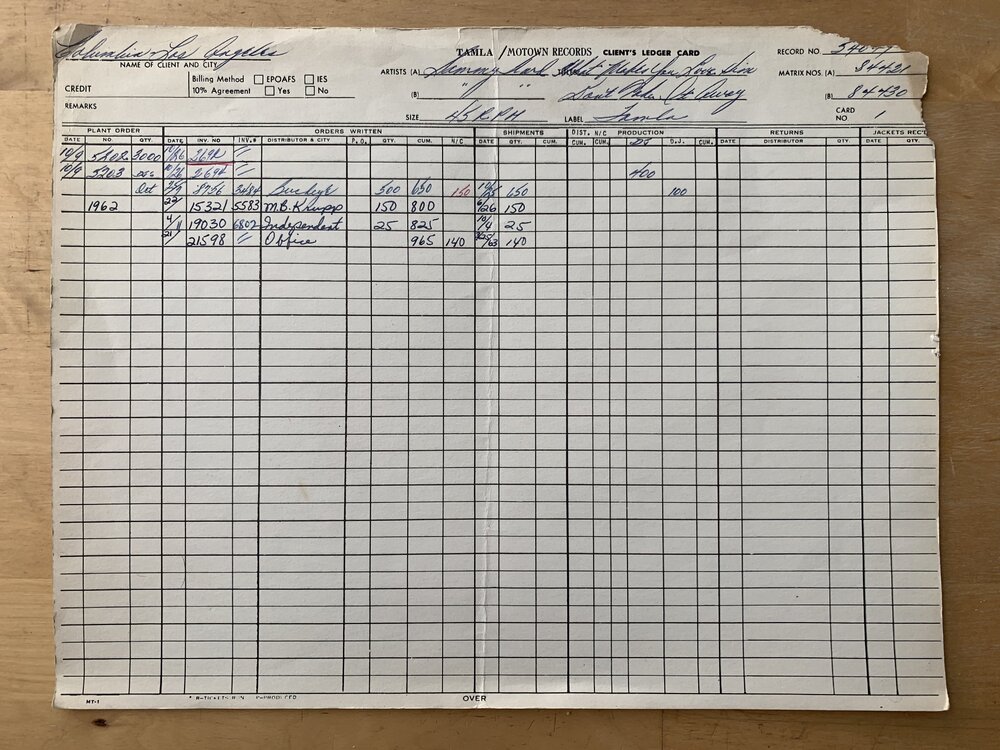 Columbia - Los Angeles
TAMLA / MOTOWN RECORDS CLIENT'S LEDGER CARD
RECORD NO.
NAME OF CLIENT AND CITY
ARTISTS (A) Sammy Ward What Makes You Love Him
MATRIX NOS. (A) 84421
CREDIT
Billing Method EPOAFS IES
10% Agreement Yes No
(B) " " Don't Take It Away
(B) 84430
REMARKS
SIZE 45 RPM LABEL Tamla
CARD NO 1
PLANT ORDER ORDERS WRITTEN SHIPMENTS DIST. N/C PRODUCTION RETURNS JACKETS REC'
DATE NO. QTY. DATE INV. NO INV.$ DISTRIBUTOR & CITY P.O. QTY. CUM. N/C DATE QTY. CUM. CUM. CUM. D.J. CUM. DATE DISTRIBUTOR QTY. DATE QTY.
10/9 5202 3000 10/26 2694 "
10/9 5203 10/26 2694 " 400
Det 3484 Buckeye 500 650 150 150 100
1962 22/ 15321 5583 M.B. Krupp 150 800 6/26 150
4/11 19030 6802 Independent 25 825 10/4 25
21/ 21598 " Office 965 140 3/25/63 140
MT-1
OVER